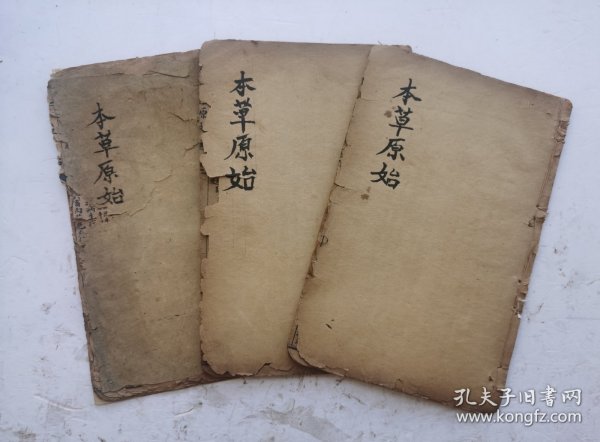 本草原始
本草原始
本草原始
孔夫子旧书网
www.kongfz.com